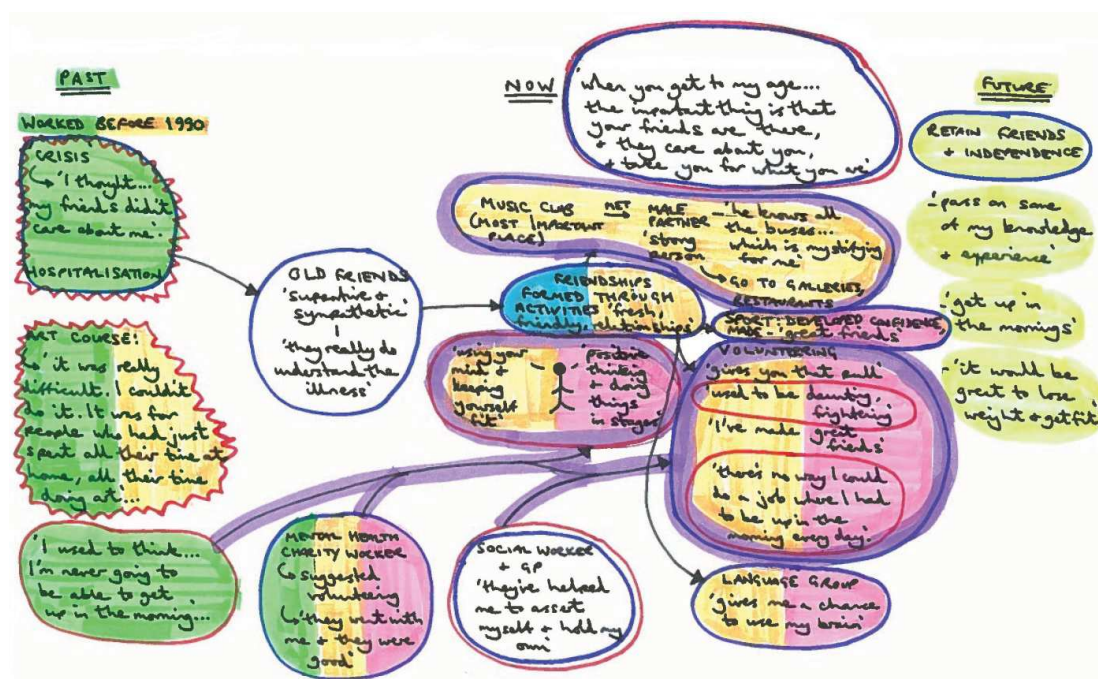 PAST
WORKED BEFORE 1990
CRISIS
↳ 'I thought...
my friends didn't
care about me'.
HOSPITALISATION
ART COURSE:
↳ 'it was really
difficult. I couldn't
do it. It was for
people who had just
spent all their time at
home, all their time
doing art'...
'I used to think...
I'm never going to
be able to get
up in the morning...
OLD FRIENDS
'supportive +
sympathetic'
'they really do
understand the
illness'
MENTAL HEALTH
CHARITY WORKER
↳ suggested
volunteering
↳ 'they went with
me + they were
good'
NOW
'when you get to my age...
the important thing is that
your friends are there,
+ they care about you,
+ take you for what you are'
MUSIC CLUB
(MOST IMPORTANT
PLACE)
MET →
MALE
PARTNER
'strong
person'
– 'he knows all
the buses...
which is mystifying
for me'
GO TO GALLERIES,
RESTAURANTS
FRIENDSHIPS
FORMED THROUGH
ACTIVITIES 'fresh,
friendly, relationships'
SPORT – DEVELOPED CONFIDENCE,
MADE 'great friends'
'using your
mind +
keeping
yourself
fit'
'positive
thinking
+ doing
things
in stages'
VOLUNTEERING
'gives you that pull'
used to be daunting,
frightening'
'I've made great
friends
'there's no way I could
do a job where I had
to be up in the
morning every day.'
SOCIAL WORKER
+ GP
'they've helped
me to asset
myself + hold my
own'
LANGUAGE GROUP
'gives me a chance
to use my brain'
FUTURE
RETAIN FRIENDS
+ INDEPENDENCE
– 'pass on some
of my knowledge
+ experience'
'get up in
the mornings'
– 'it would be
great to lose
weight + get fit'